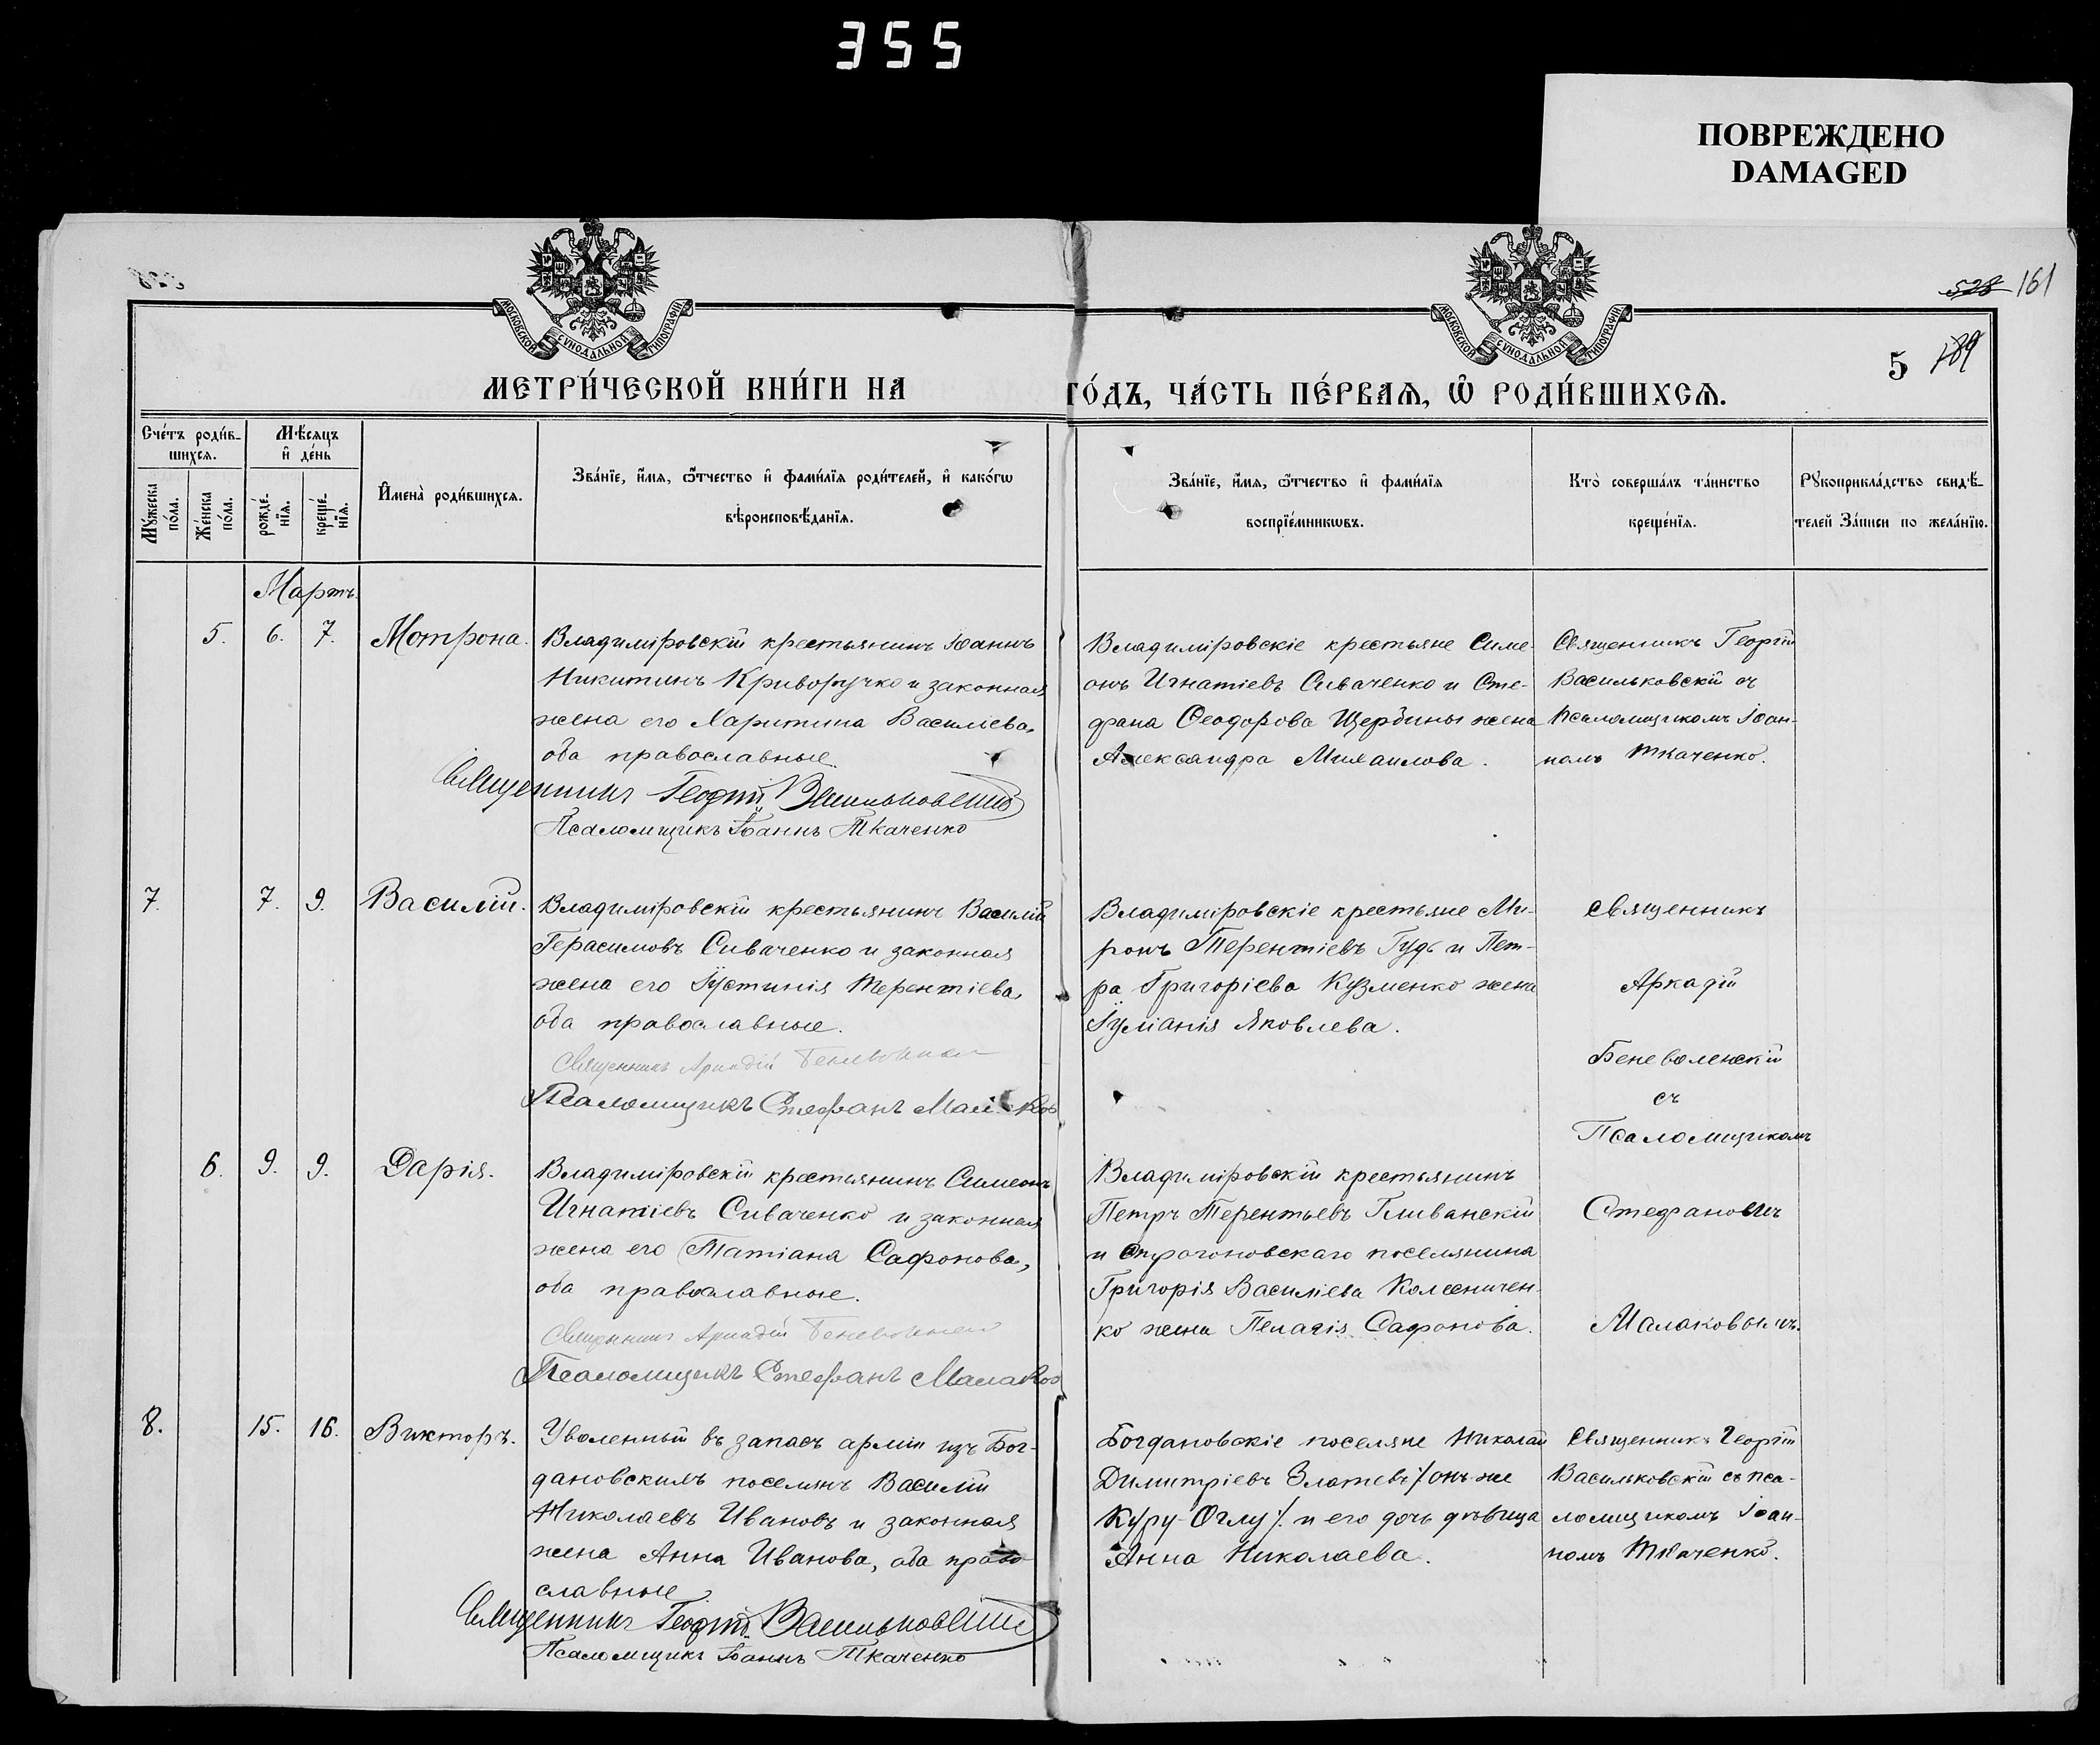 355
ПОВРЕЖДЕНО
DAMAGED
МОСКОВСКОЙ СѴНОДАЛЬНОЙ ТИПОГРАФІИ
МОСКОВСКОЙ СѴНОДАЛЬНОЙ ТИПОГРАФІИ
528 161
5 189
МЕТРИ́ЧЕСКОЙ КНИ́ГИ НА
ГО́ДЪ, ЧА́СТЬ ПЕ́РВАЯ, Ѡ РОДИ́ВШИХСЯ.
Сче́тъ роди́в-
шихся.
Мꙋ́жеска
по́ла.
Же́нска
по́ла.
Мѣ́сяцъ
и҆ де́нь
рожде́-
нїя.
креще́-
нїя.
И҆мена̀ роди́вшихся.
Зва́нїе, и҆́мя, ѻ҆́тчество и҆ фами́лїя роди́телей, и҆ како́гѡ
вѣроисповѣ́данїя.
Зва́нїе, и҆́мя, ѻ҆́тчество и҆ фами́лїя
воспрїе́мникѡвъ.
Кто̀ соверша́лъ та́инство
креще́нїя.
Рꙋкоприкла́дство свидѣ́-
телей За́писи по жела́нїю.
Мартъ.
5. 6. 7. Мотрона.
Владиміровскій крестьянинъ Іоаннъ
Никитинъ Криворучко и законная
жена его Харитина Василіева,
оба православные.
Священникъ Георгій Васильковскій
Псаломщикъ Іоаннъ Ткаченко
Владиміровскіе крестьяне Симе-
онъ Игнатіевъ Сиваченко и Сте-
фана Ѳеодорова Щербины жена
Александра Михаилова.
Священникъ Георгій
Васильковскій съ
псаломщикомъ Іоан-
номъ Ткаченко.
7. 7. 9. Василій.
Владиміровскій крестьянинъ Василій
Герасимовъ Сиваченко и законная
жена его Іустинія Терентіева,
оба православные.
Священникъ Аркадій Беневоленскій
Псаломщикъ Стефанъ Малаков
Владиміровскіе крестьяне Ми-
ронъ Терентіевъ Гудь и Пет-
ра Григоріева Кузменко жена
Іуліанія Яковлева.
Священникъ
Аркадій
Беневоленскій
съ
Псаломщикомъ
Стефаномъ
Малаковымъ.
6. 9. 9. Дарія.
Владиміровскій крестьянинъ Симеонъ
Игнатіевъ Сиваченко и законная
жена его Татіана Сафонова,
оба православные.
Священникъ Аркадій Беневоленскій
Псаломщикъ Стефанъ Малаков
Владиміровскій крестьянинъ
Петръ Терентьевъ Гливанскій
и Строгоновскаго поселянина
Григорія Василіева Колесничен-
ко жена Пелагія Сафонова.
8. 15. 16. Викторъ.
Уволенный въ запасъ арміи изъ Бог-
дановскимъ поселянъ Василій
Николаевъ Ивановъ и законная
жена Анна Иванова, оба право-
славные
Священникъ Георгій Васильковскій
Псаломщикъ Іоаннъ Ткаченко
Богдановскіе поселяне Николай
Димитріевъ Златевъ /онъ-же
Куру-Оглу/. и его дочь дѣвица
Анна Николаева.
Священникъ Георгій
Васильковскій съ пса-
ломщикомъ Іоан-
номъ Ткаченко.